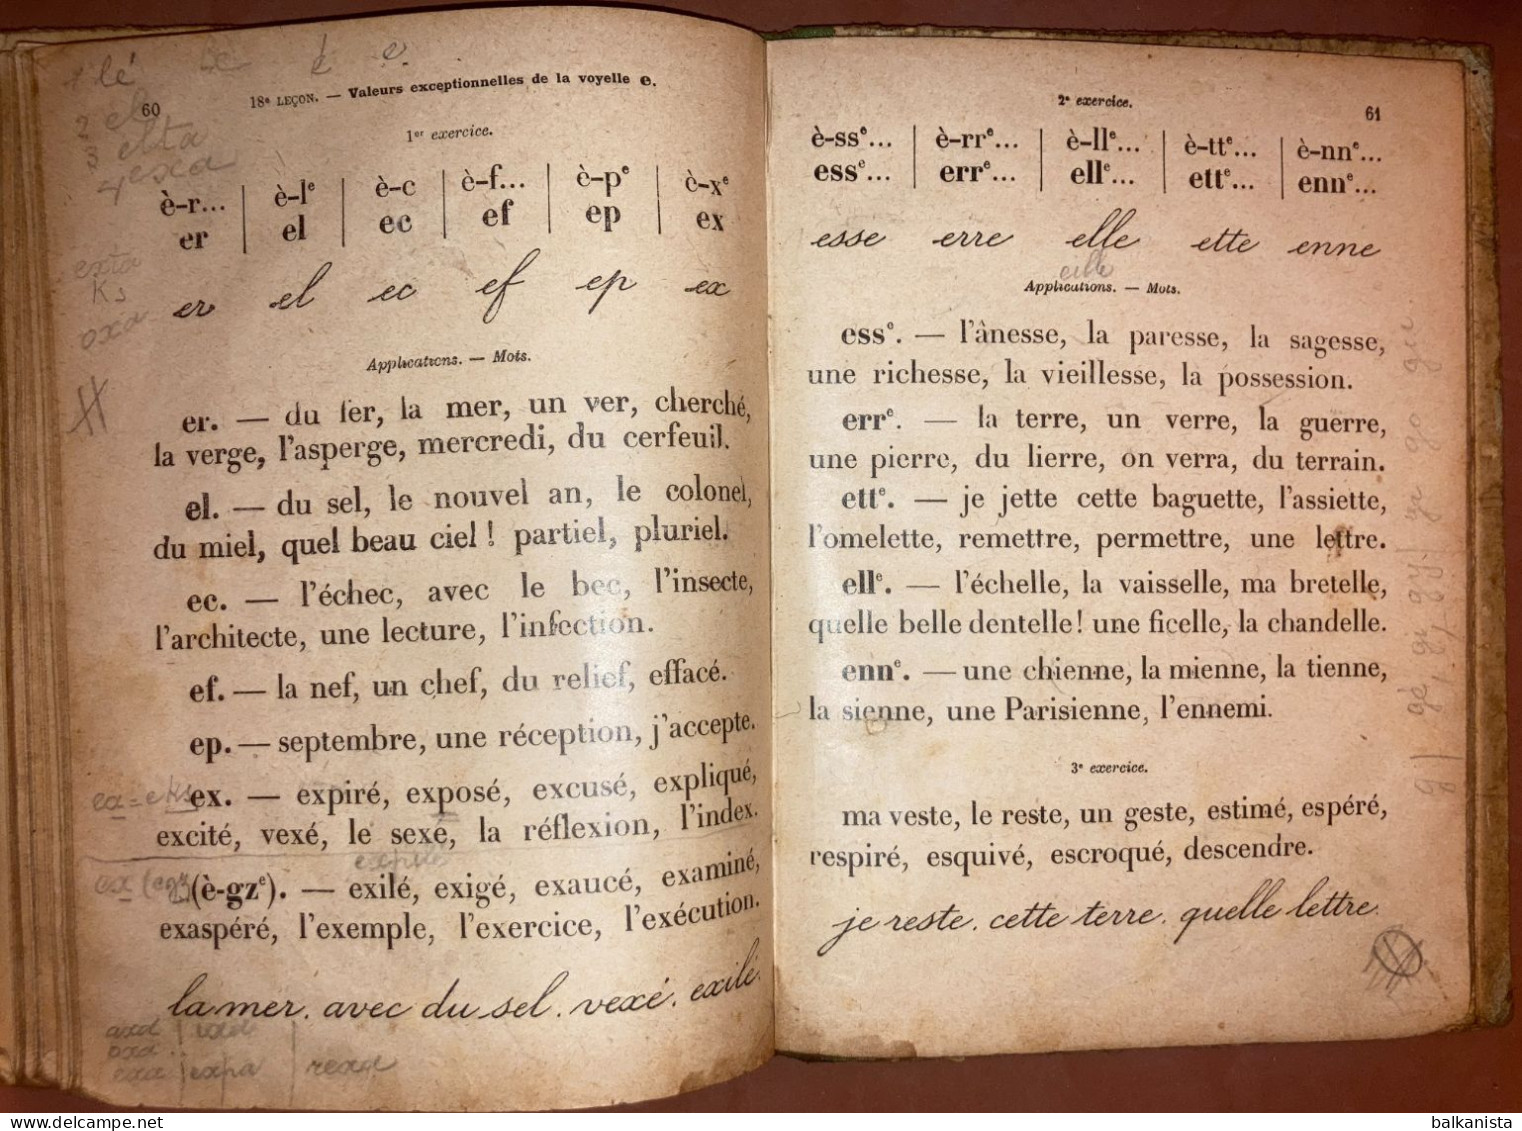 lé
60
18e LEÇON. — Valeurs exceptionnelles de la voyelle e.
1er exercice.
è-r... è-le è-c è-f... è-pe è-xe
er el ec ef ep ex
er el ec ef ep ex
exta
Ks
oxa
Applications. — Mots.
er. — du fer, la mer, un ver, cherché,
la verge, l'asperge, mercredi, du cerfeuil.
el. — du sel, le nouvel an, le colonel,
du miel, quel beau ciel ! partiel, pluriel.
ec. — l'échec, avec le bec, l'insecte,
l'architecte, une lecture, l'infection.
ef. — la nef, un chef, du relief, effacé.
ep. — septembre, une réception, j'accepte.
ex. — expiré, exposé, excusé, expliqué,
excité, vexé, le sexe, la réflexion, l'index.
(è-gze). — exilé, exigé, exaucé, examiné,
exaspéré, l'exemple, l'exercice, l'exécution.
la mer. avec du sel. vexé. exilé.
expa rexa
2e exercice.
61
è-sse... è-rre... è-lle... è-tte... è-nne...
esse... erre... elle... ette... enne...
esse erre elle ette enne
Applications. — Mots.
esse. — l'ânesse, la paresse, la sagesse,
une richesse, la vieillesse, la possession.
erre. — la terre, un verre, la guerre,
une pierre, du lierre, on verra, du terrain.
ette. — je jette cette baguette, l'assiette,
l'omelette, remettre, permettre, une lettre.
elle. — l'échelle, la vaisselle, ma bretelle,
quelle belle dentelle! une ficelle, la chandelle.
enne. — une chienne, la mienne, la tienne,
la sienne, une Parisienne, l'ennemi.
3e exercice.
ma veste, le reste, un geste, estimé, espéré,
respiré, esquivé, escroqué, descendre.
je reste. cette terre. quelle lettre.
balkanista